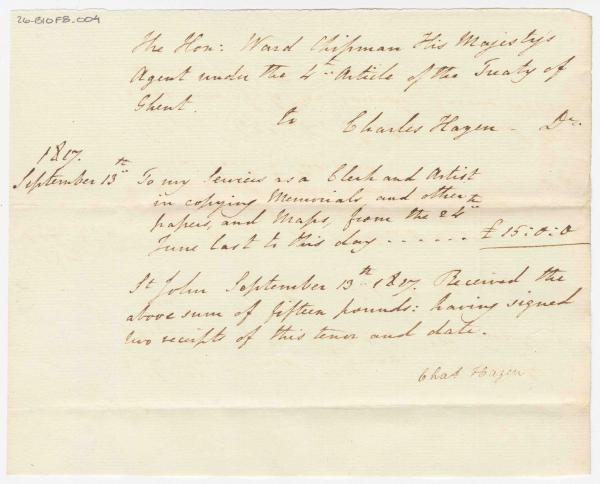 26-B10F8.004
The Hon: Ward Chipman His Majesty's
Agent under the 4th Article of the Treaty of
Ghent.
to
Charles Hazen - Dr.
1817.
September 13th To my Services as a Clerk and Artist
in copying Memorials, and other
papers, and Maps, from the 24th
June last to this day - - - - - - £15:0:0
St John September 13th 1817. Received the
above sum of fifteen pounds: having signed
two receipts of this tenor and date.
Chas Hazen